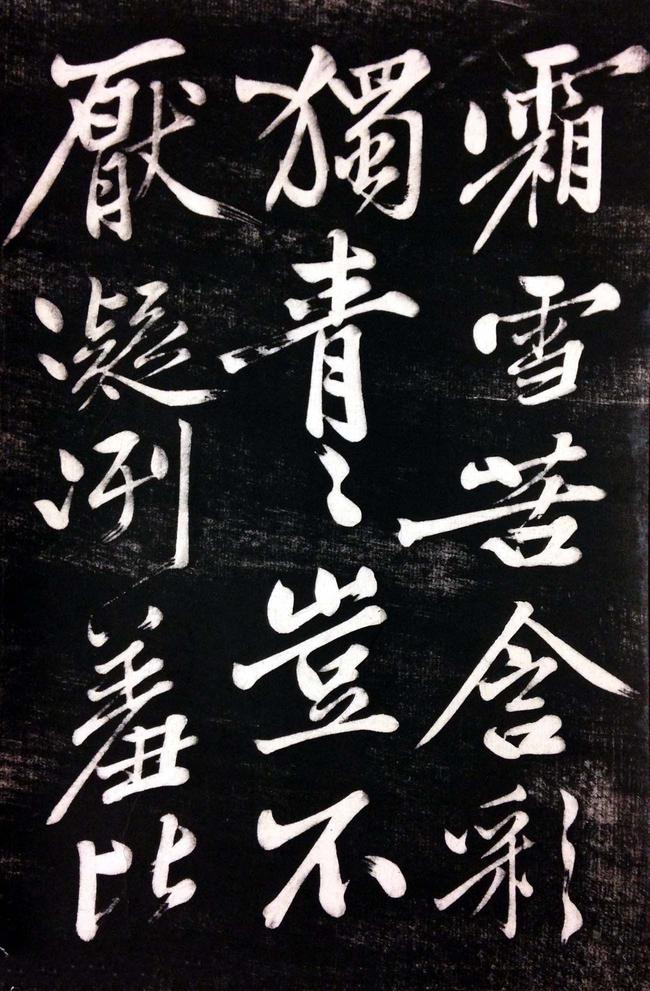 霜雪苦含彩
獨青〻豈不
厭凝冽羞比